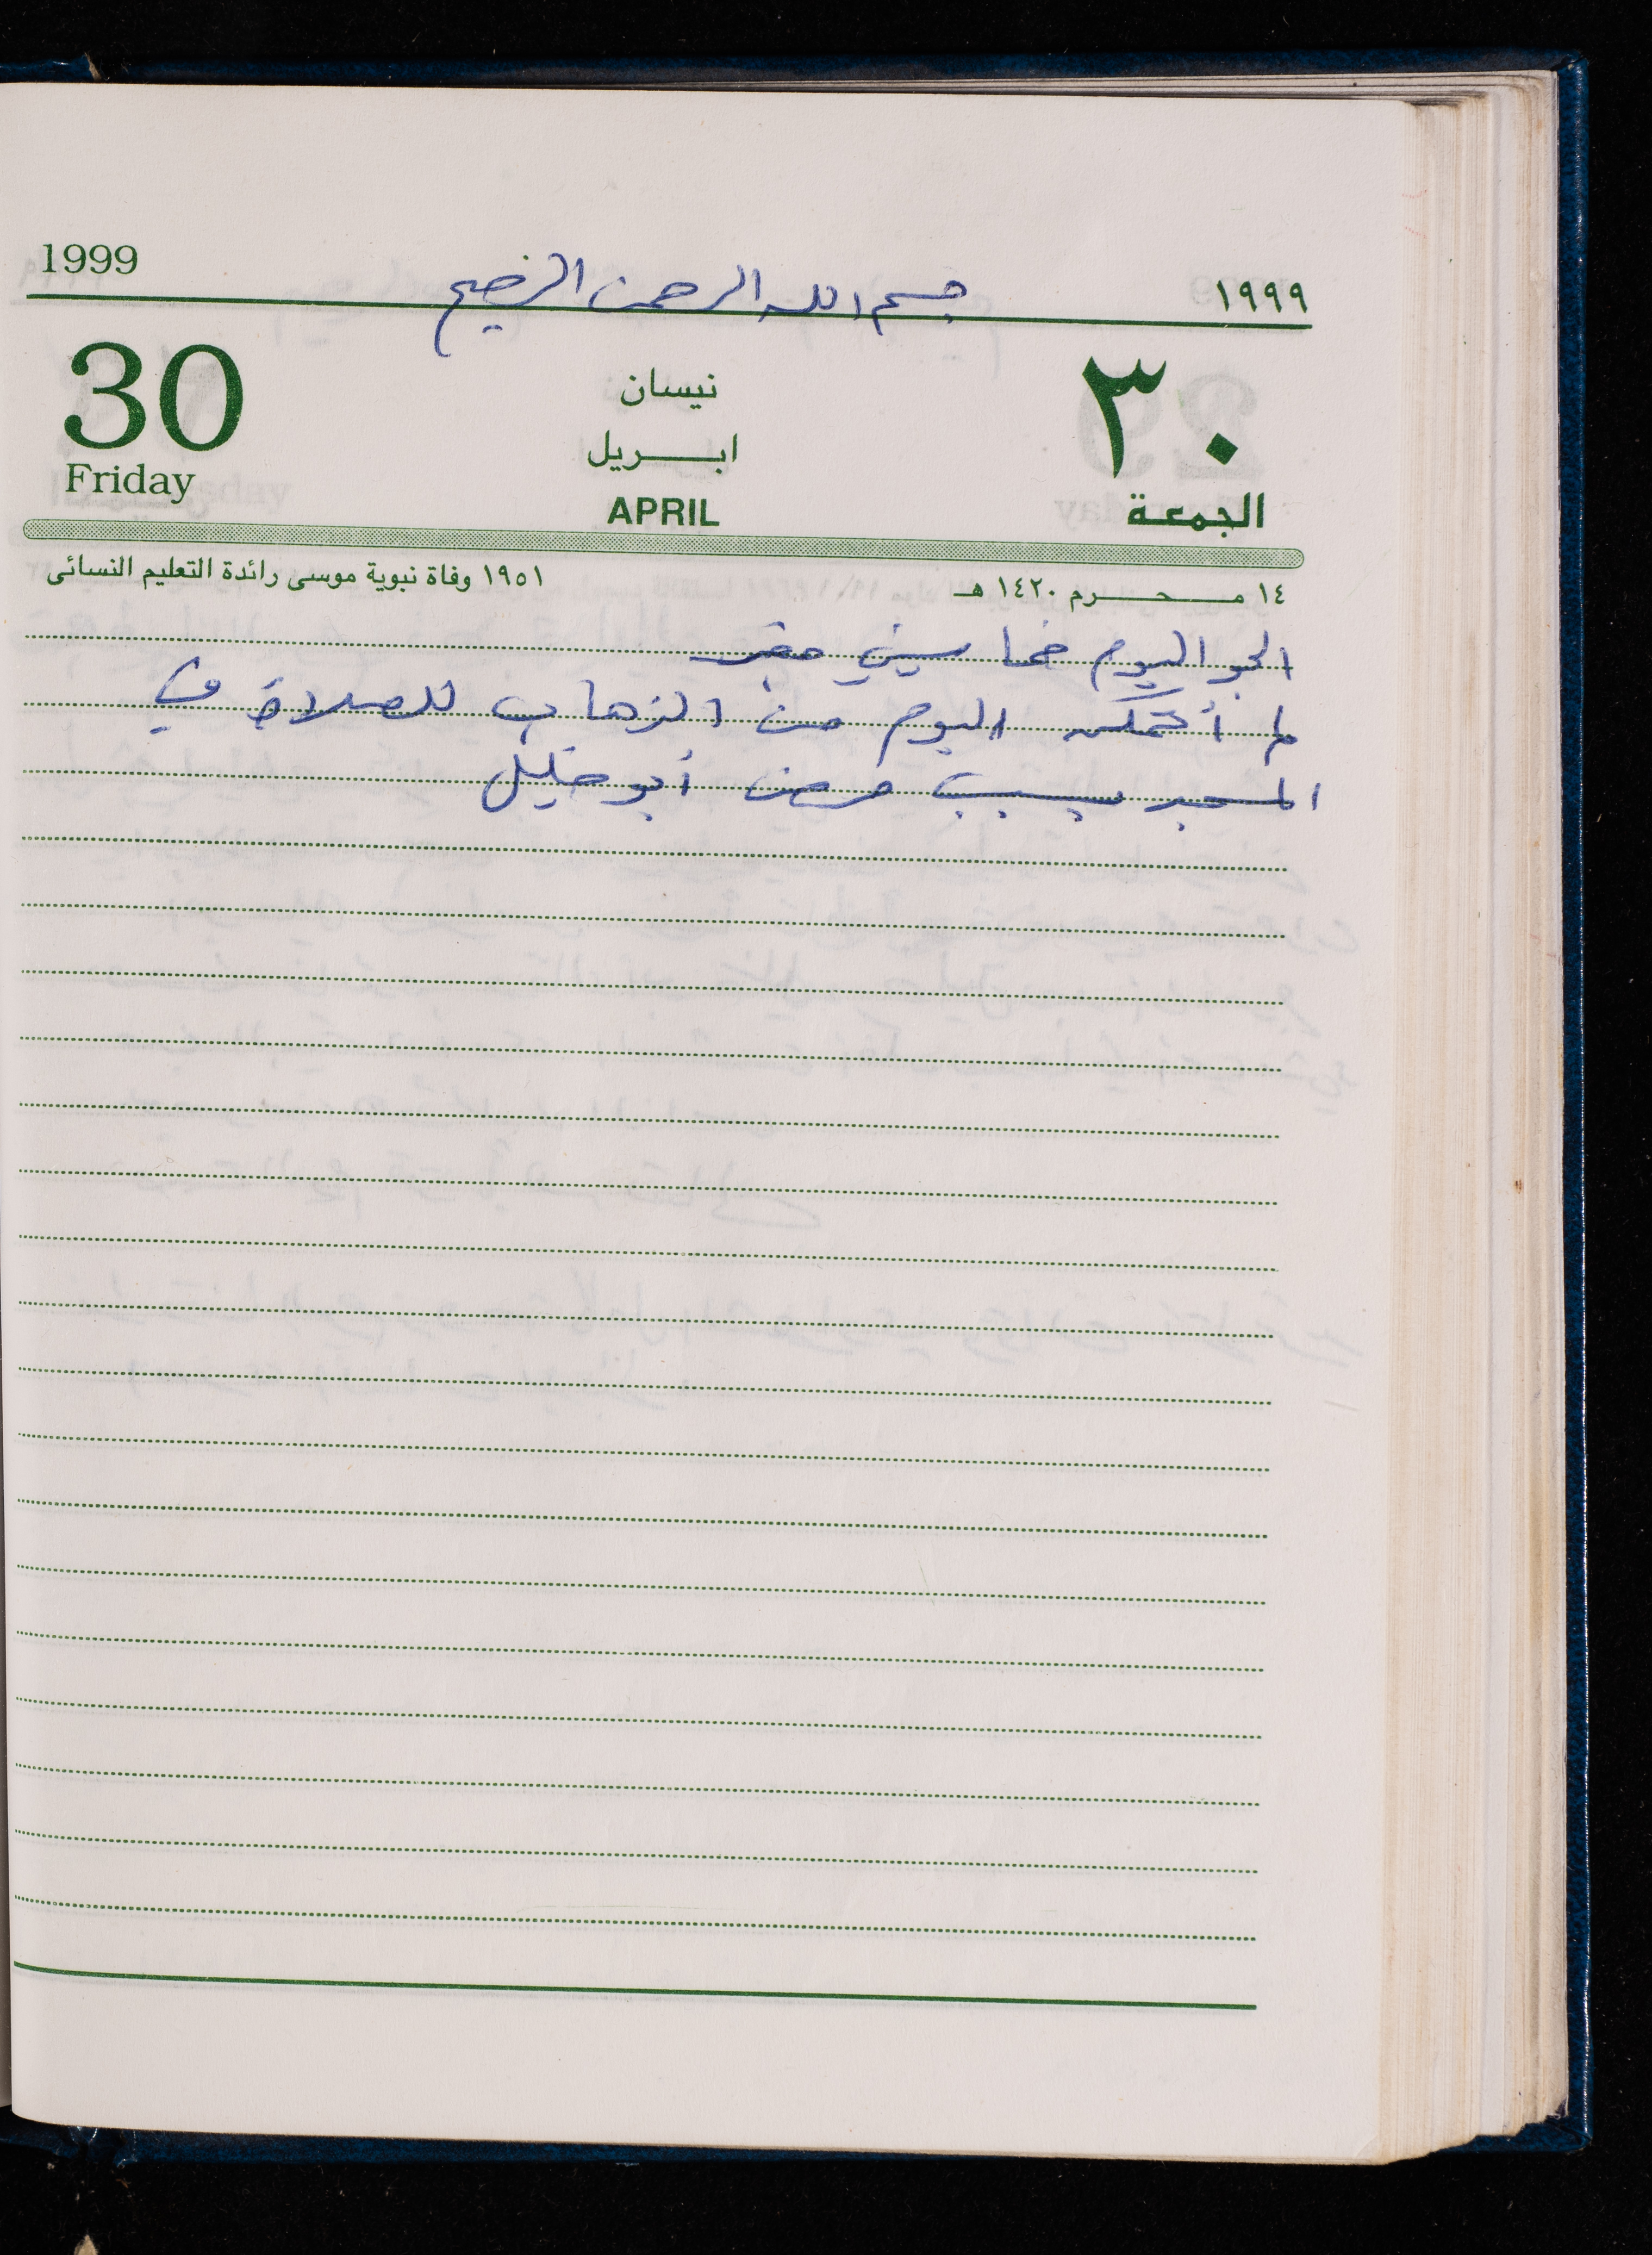 1999
١٩٩٩
بسم الله الرحمن الرحيم
30
Friday
نيسان
ابريل
APRIL
٣٠
الجمعة
١٤ محرم ١٤٢٠ هـ
١٩٥١ وفاة نبوية موسى رائدة التعليم النسائى
الجو اليوم خماسيني مغبر
لم أتمكن اليوم من الذهاب للصلاة في
المسجد بسبب مرض أبو خليل